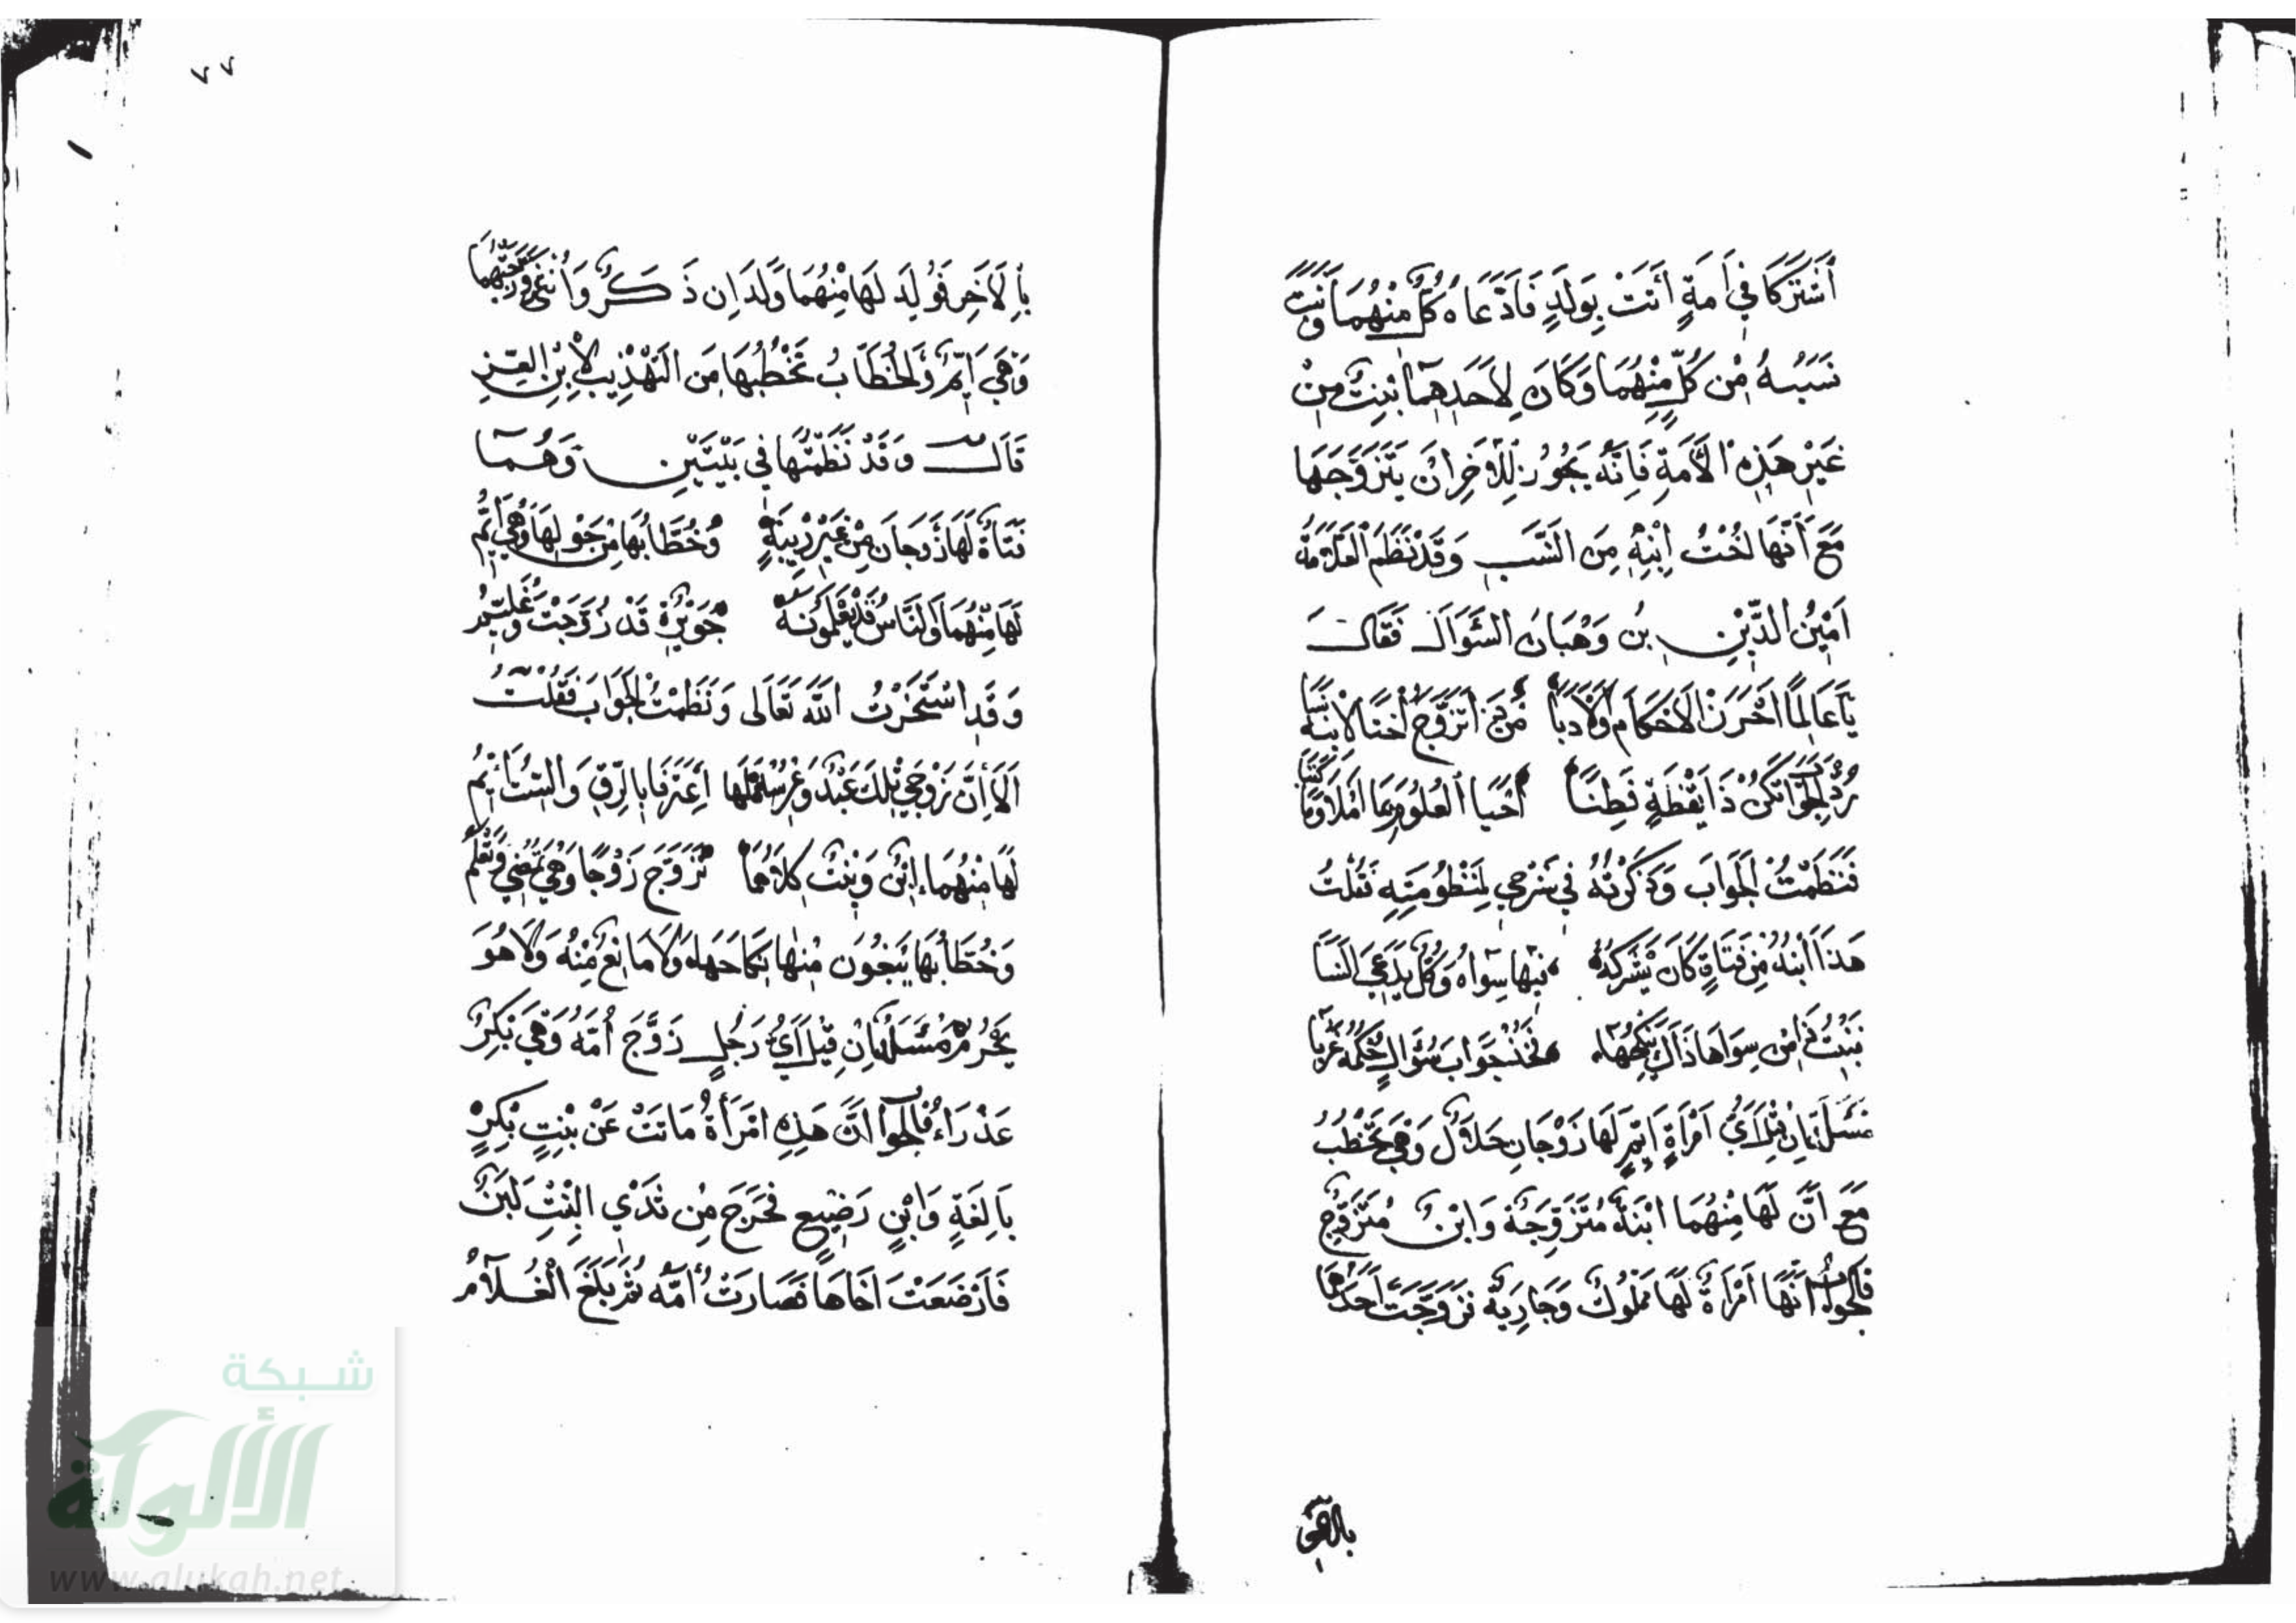 أَشْتَرَكَا فِي أَمَةٍ أَتَتْ بِوَلَدٍ فَادَّعَاهُ كُلٌّ مِنْهُمَا وَثَبَتَ
نَسَبُهُ مِنْ كُلٍّ مِنْهُمَا وَكَانَ لِأَحَدِهِمَا بِنْتٌ مِنْ
غَيْرِ هَذِهِ الْأَمَةِ فَإِنَّهُ يَجُوزُ لِلْآخَرِ أَنْ يَتَزَوَّجَهَا
مَعَ أَنَّهَا أُخْتُ ابْنِهِ مِنَ النَّسَبِ وَقَدْ نَظَمَ الْعَلَّامَةُ
أَمِينُ الدِّينِ بْنُ وَهْبَانَ السُّؤَالَ فَقَالَ
يَا عَالِمًا أَحْرَزَ الْأَحْكَامَ وَالْأَدَبَا مَنْ تَزَوَّجَ أُخْتًا لِابْنِهِ نَسَبَا
رُدَّ الْجَوَابَ تَكُنْ ذَا يَقْظَةٍ فَطِنًا أَحْيَا الْعُلُومَ بِمَا أَمْلَا وَمَا كَتَبَا
فَنَظَمْتُ الْجَوَابَ وَذَكَرْتُهُ فِي شَرْحِي لِمَنْظُومَتِهِ فَقُلْتُ
هَذَا ابْنُهُ مِنْ فَتَاةٍ كَانَ يُشْرِكُهُ فِيهَا سِوَاهُ وَكُلٌّ يَدَّعِي النَّسَبَا
فَبِنْتُ ذَا مِنْ سِوَاهَا ذَاكَ يَنْكِحُهَا فَخُذْ جَوَابَ سُؤَالٍ حُكْمُهُ غَرُبَا
مَسْئَلَتَانِ قِيلَ أَيُّ امْرَأَةٍ أَيِّمٍ لَهَا زَوْجَانِ حَلَالٌ وَهِيَ تُخْطَبُ
مَعَ أَنَّ لَهَا مِنْهُمَا ابْنَةٌ مُتَزَوِّجَةٌ وَابْنٌ مُتَزَوِّجٌ
فَالْجَوَابُ أَنَّهَا امْرَأَةٌ لَهَا مَمْلُوكٌ وَجَارِيَةٌ تَزَوَّجَتْ أَحَدُهُمَا
بالآخر
٧٧
بِالْآخَرِ فَوُلِدَ لَهَا مِنْهُمَا وَلَدَانِ ذَكَرٌ وَأُنْثَى
وَهِيَ أَيِّمٌ وَالْخُطَّابُ تَخْطُبُهَا مِنَ التَّهْذِيبِ لِابْنِ الْعِزِّ
قَالَ وَقَدْ نَظَمْتُهَا فِي بَيْتَيْنِ وَهُمَا
فَتَاةٌ لَهَا زَوْجَانِ مِنْ غَيْرِ رِيبَةٍ وَخُطَّابُهَا مِنْ حَوْلِهَا وَهِيَ أَيِّمُ
لَهَا مِنْهُمَا وَالنَّاسُ قَدْ يَعْلَمُونَهُ جُوَيْرِيَةٌ قَدْ زُوِّجَتْ وَغُلَيِّمُ
وَقَدِ اسْتَخَرْتُ اللَّهَ تَعَالَى وَنَظَمْتُ الْجَوَابَ فَقُلْتُ
أَلَا إِنَّ زَوْجَي تِلْكَ عَبْدٌ وَعِرْسُهُ لَهَا اعْتَرَفَا بِالرِّقِّ وَالسِّتُّ أَيِّمُ
لَهَا مِنْهُمَا ابْنٌ وَبِنْتٌ كِلَاهُمَا تَزَوَّجَ زَوْجًا وَهِيَ تَمْضِي وَتَعْلَمُ
وَخُطَّابُهَا يَبْغُونَ مِنْهَا نِكَاحَهَا وَلَا مَانِعٌ مِنْهُ وَلَا هُوَ
يَحْرُمُ مَسْئَلَتَانِ قِيلَ أَيُّ رَجُلٍ زَوَّجَ أُمَّهُ وَهِيَ بِكْرٌ
عَذْرَاءُ فَالْجَوَابُ أَنَّ هَذِهِ امْرَأَةٌ مَاتَتْ عَنْ بِنْتٍ بِكْرٍ
بَالِغَةٍ وَابْنٍ رَضِيعٍ فَخَرَجَ مِنْ ثَدْيِ الْبِنْتِ لَبَنٌ
فَأَرْضَعَتْ أَخَاهَا فَصَارَتْ أُمَّهُ ثُمَّ بَلَغَ الْغُلَامُ
شبكة
الألوكة
www.alukah.net